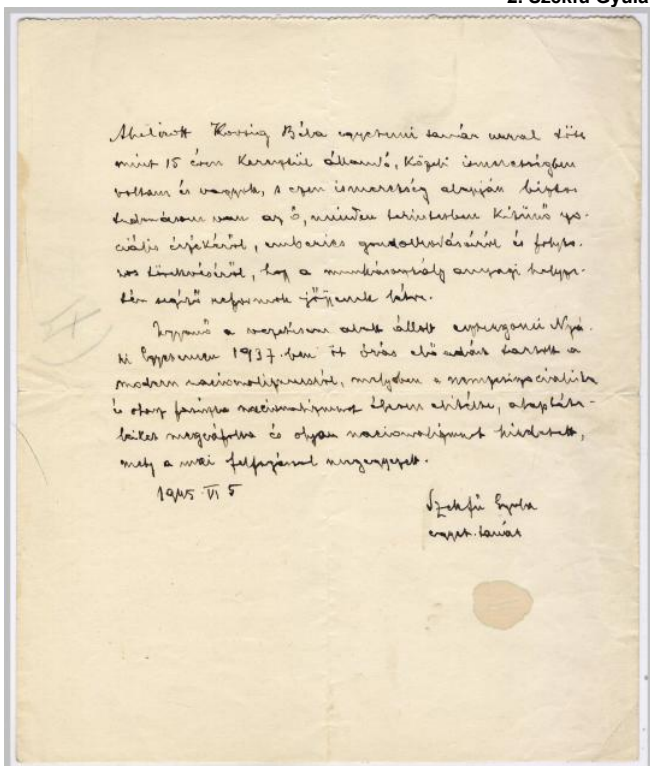 2. Szekfű Gyula
Abelőtt Kovrig Béla egyetemi tanár úrral több
mint 15 éven keresztül állandó, közeli ismeretségben
voltam és vagyok, s ezen ismeretség alapján biztos
tudomásom van az ő, minden tekintetben kitűnő szo-
ciális érzékéről, emberies gondolkodásáról és folyto-
nos törekvéséről, hogy a munkásosztály anyagi helyze-
tén segítő reformok jőjjenek létre.
Ugyanő a vezetésem alatt állott esztergomi Nyá-
ri Egyetemen 1937-ben öt órás előadást tartott a
modern nacionalizmusról, melyben a nemzetiszocialista
és olasz fasiszta nacionalizmust élesen elítélte, alaptéte-
leiket megcáfolta és olyan nacionalizmust hirdetett,
mely a mai felfogással megegyezett.
1945 VI 5
Szekfű Gyula
egyet. tanár